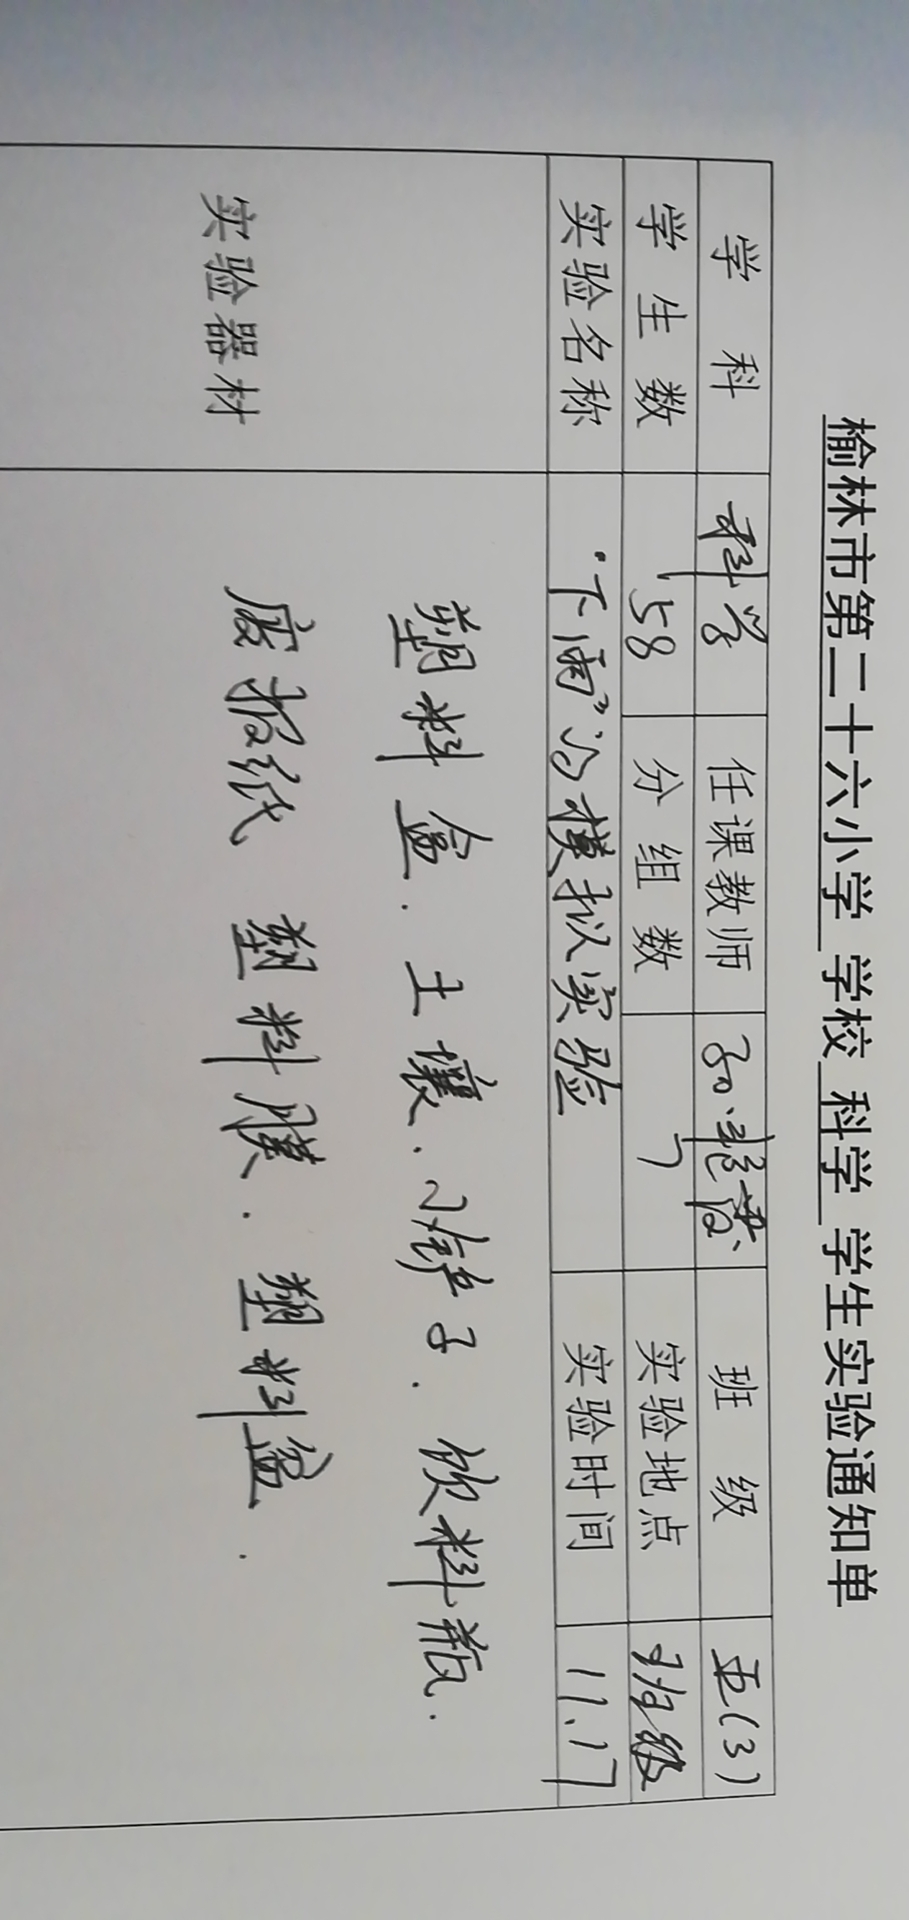 榆林市第二十六小学 学校 科学 学生实验通知单
学科 科学 任课教师 班级 五(3)
学生数 58 分组数 7 实验地点 班级
实验名称 “下雨”的模拟实验 实验时间 11.17
实验器材
塑料盒.土壤.小铲子.饮料瓶.
废报纸 塑料膜.塑料盆.